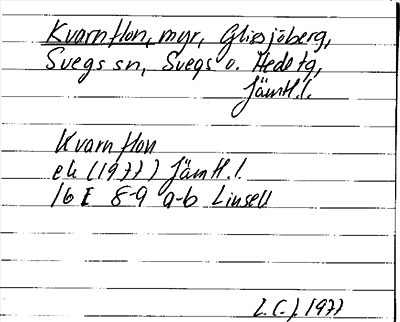 Kvarnflon, myr, Glissjöberg,
Svegs sn, Svegs o. Hede tg,
Jämtl. l.
Kvarnflon
ek (1977) Jämtl. l.
16 E 8-9 a-b Linsell
L.C.J. 1977